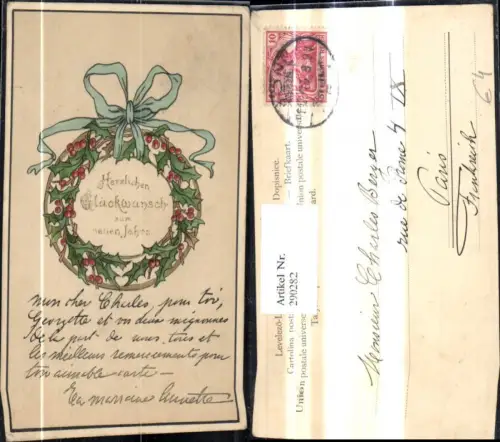 Herzlichen
Glückwunsch
zum
neuen Jahre.
mon cher Charles, pour toi,
Georgette et vos deux mignonnes
de la part de nous tous et
les meilleurs remerciements pour
ton aimable carte —
Ta marraine Annette
10
Dopisnice.
— Briefkaart.
Union postale universelle
Artikel Nr.
290282
Cartolina post
Union postale universe
Monsieur Charles Berger
rue de Rome 4 IX
Paris
Frankreich